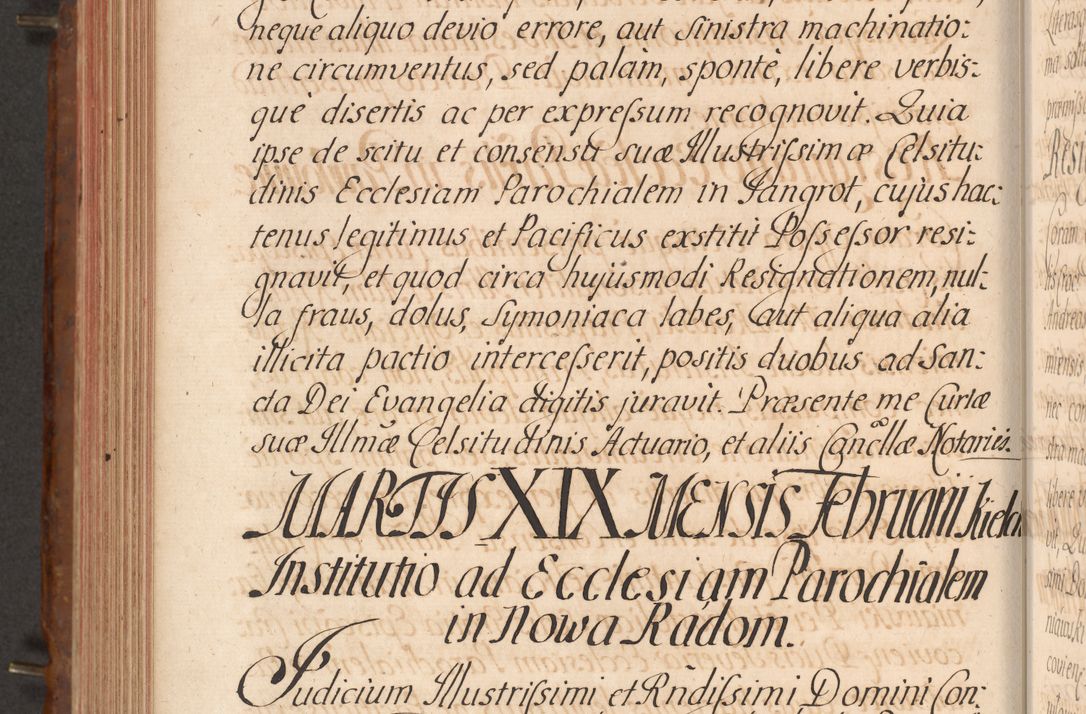 neque aliquo devio errore, aut sinistra machinatio:
ne circumventus, sed palam, spontè, libere verbis:
què disertis ac per expreſsum recognovit. Quia
ipse de scitu et consensu suæ Illustriſsimæ Celsitu:
dinis Ecclesiam Parochialem in Jangrot, cujus hac:
tenus legitimus et Pacificus exstitit Poſseſsor resi:
gnavit, et quod circa hujusmodi Resignationem, nul:
la fraus, dolus, Symoniaca labes, aut aliqua alia
illicita pactio interceſserit, positis duobus ad San:
cta Dei Evangelia digitis juravit. Præsente me Curiæ
suæ Illmæ Celsitudinis Actuario, et aliis Cancllæ Notariis.
MARTIS XIX MENSIS Februarii
Institutio ad Ecclesiam Parochialem
in Nowa Radom.
Judicium Illustriſsimi et Rndiſsimi Domini Con: